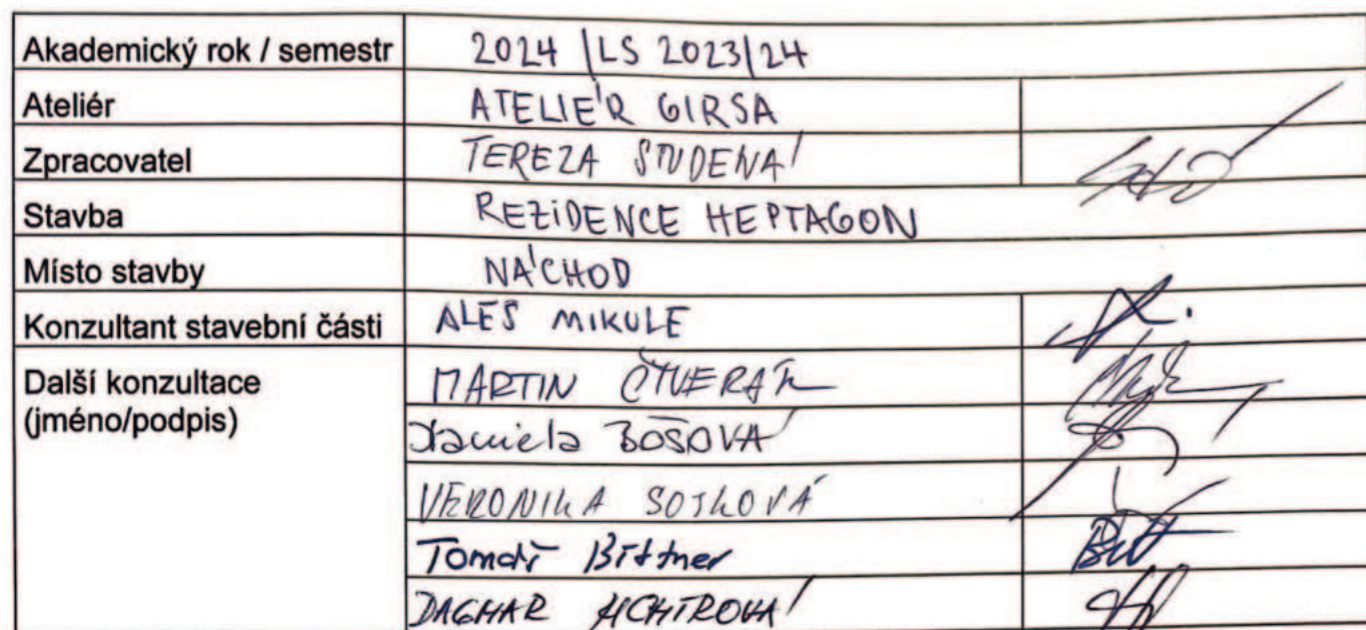 Akademický rok / semestr 2024 /LS 2023/24
Ateliér ATELIÉR GIRSA
Zpracovatel TEREZA STUDENÁ
Stavba REZIDENCE HEPTAGON
Místo stavby NÁCHOD
Konzultant stavební části ALEŠ MIKULE
Další konzultace MARTIN
(jméno/podpis)
Daniela BOŠOVÁ
VERONIKA SOJKOVÁ
Tomáš Bittner
DAGMAR